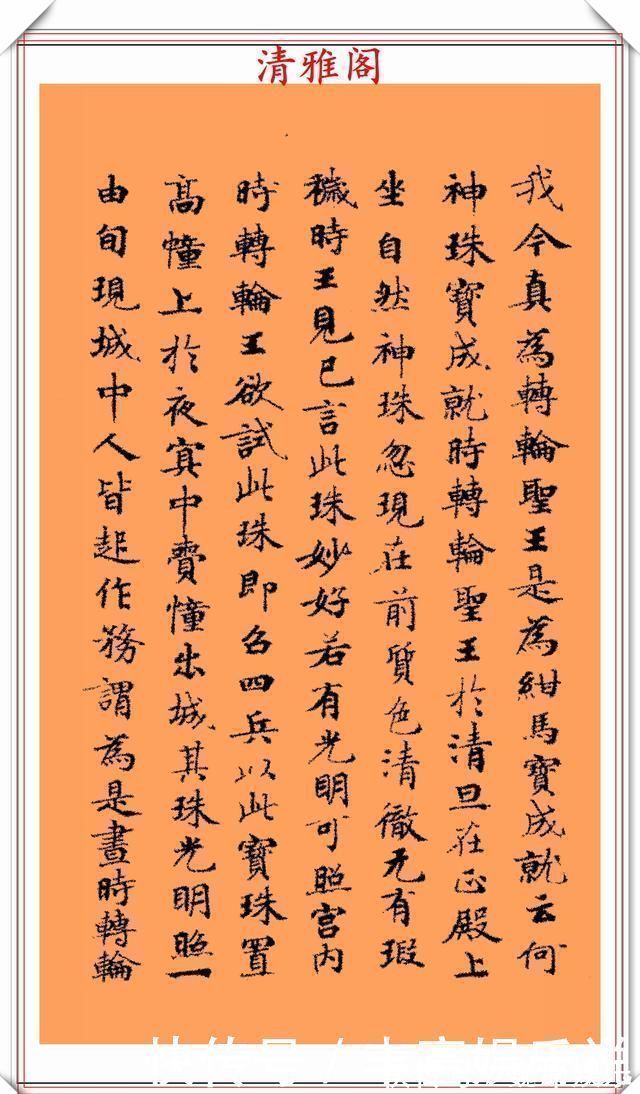 清雅阁
我今真為轉輪聖王是為紺馬寶成就云何
神珠寶成就時轉輪聖王於清旦在正殿上
坐自然神珠忽現在前質色清徹无有瑕
穢時王見已言此珠妙好若有光明可照宮内
時轉輪王欲試此珠即召四兵以此寶珠置
高幢上於夜冥中賫幢出城其珠光明照一
由旬現城中人皆起作務謂為是晝時轉輪